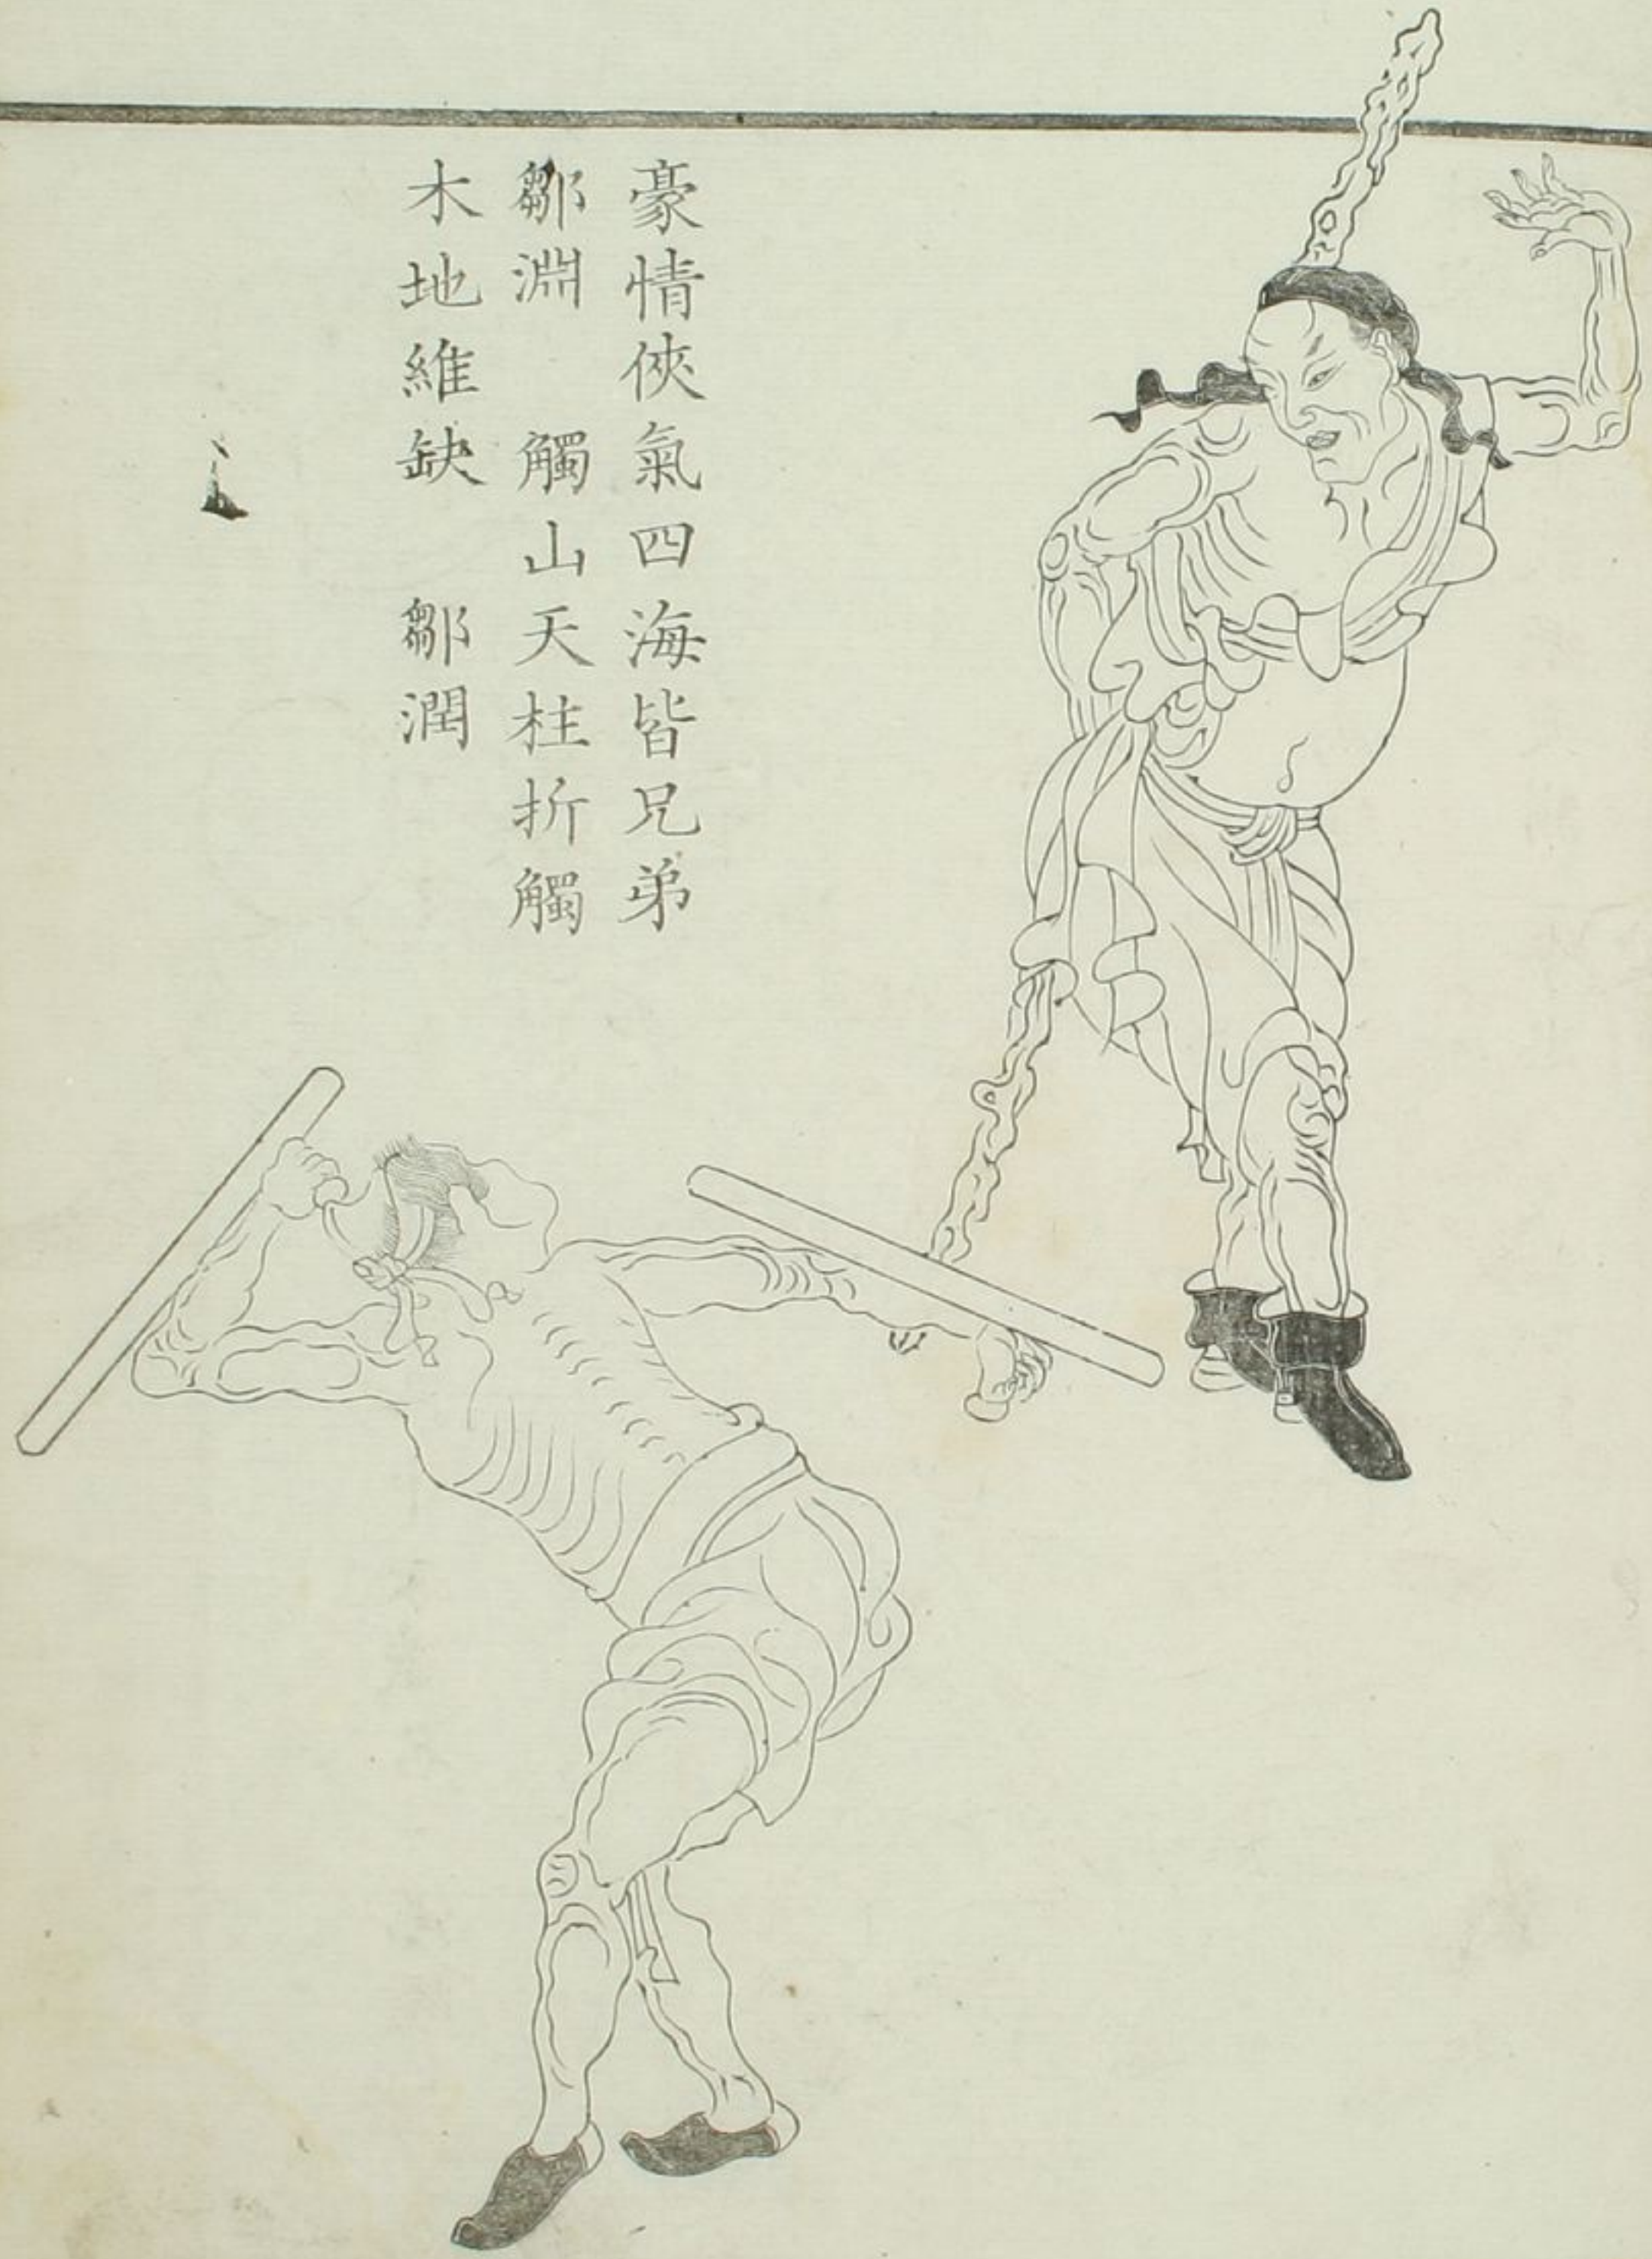 豪情俠氣四海皆兄弟
鄒淵　觸山天柱折觸
木地維缺　鄒潤